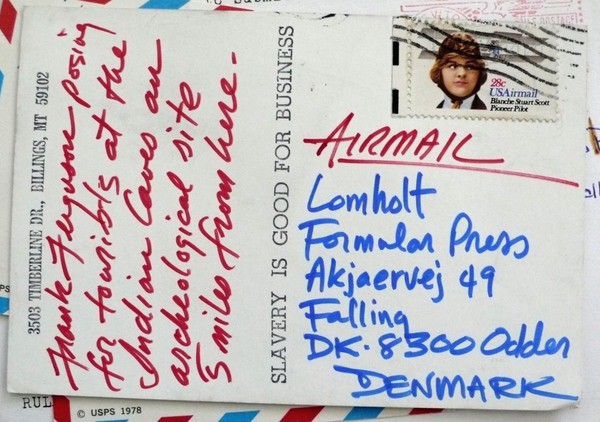 3503 TIMBERLINE DR., BILLINGS, MT 59102
Frank Ferguson posing
for tourists at the
Indian Caves an
archeological site
5 miles from here.
SLAVERY IS GOOD FOR BUSINESS
28c
USAirmail
Blanche Stuart Scott
Pioneer Pilot
AIRMAIL
Lomholt
Formular Press
Akjaervej 49
Falling
DK. 8300 Odder
DENMARK
© USPS 1978
RUL
PS